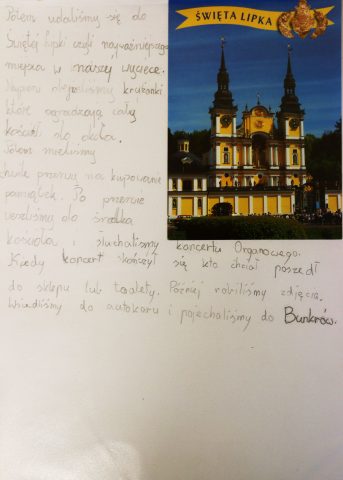 Potem udaliśmy się do
Świętej Lipki czyli najważniejszego
miejsca w naszej wycece.
Najpierw obejrzeliśmy krużganki
które ogradzają cały
kościół do okoła.
Potem mieliśmy
chwile przerwy na kupowanie
pamiątek. Po przerwie
weszliśmy do środka
kościoła i słuchaliśmy koncertu Organowego.
Kiedy koncert skończył się kto chciał poszedł
do sklepu lub toalety. Później robiliśmy zdjęcia.
Wsiedliśmy do autokaru i pojechaliśmy do Bunkrów.
ŚWIĘTA LIPKA